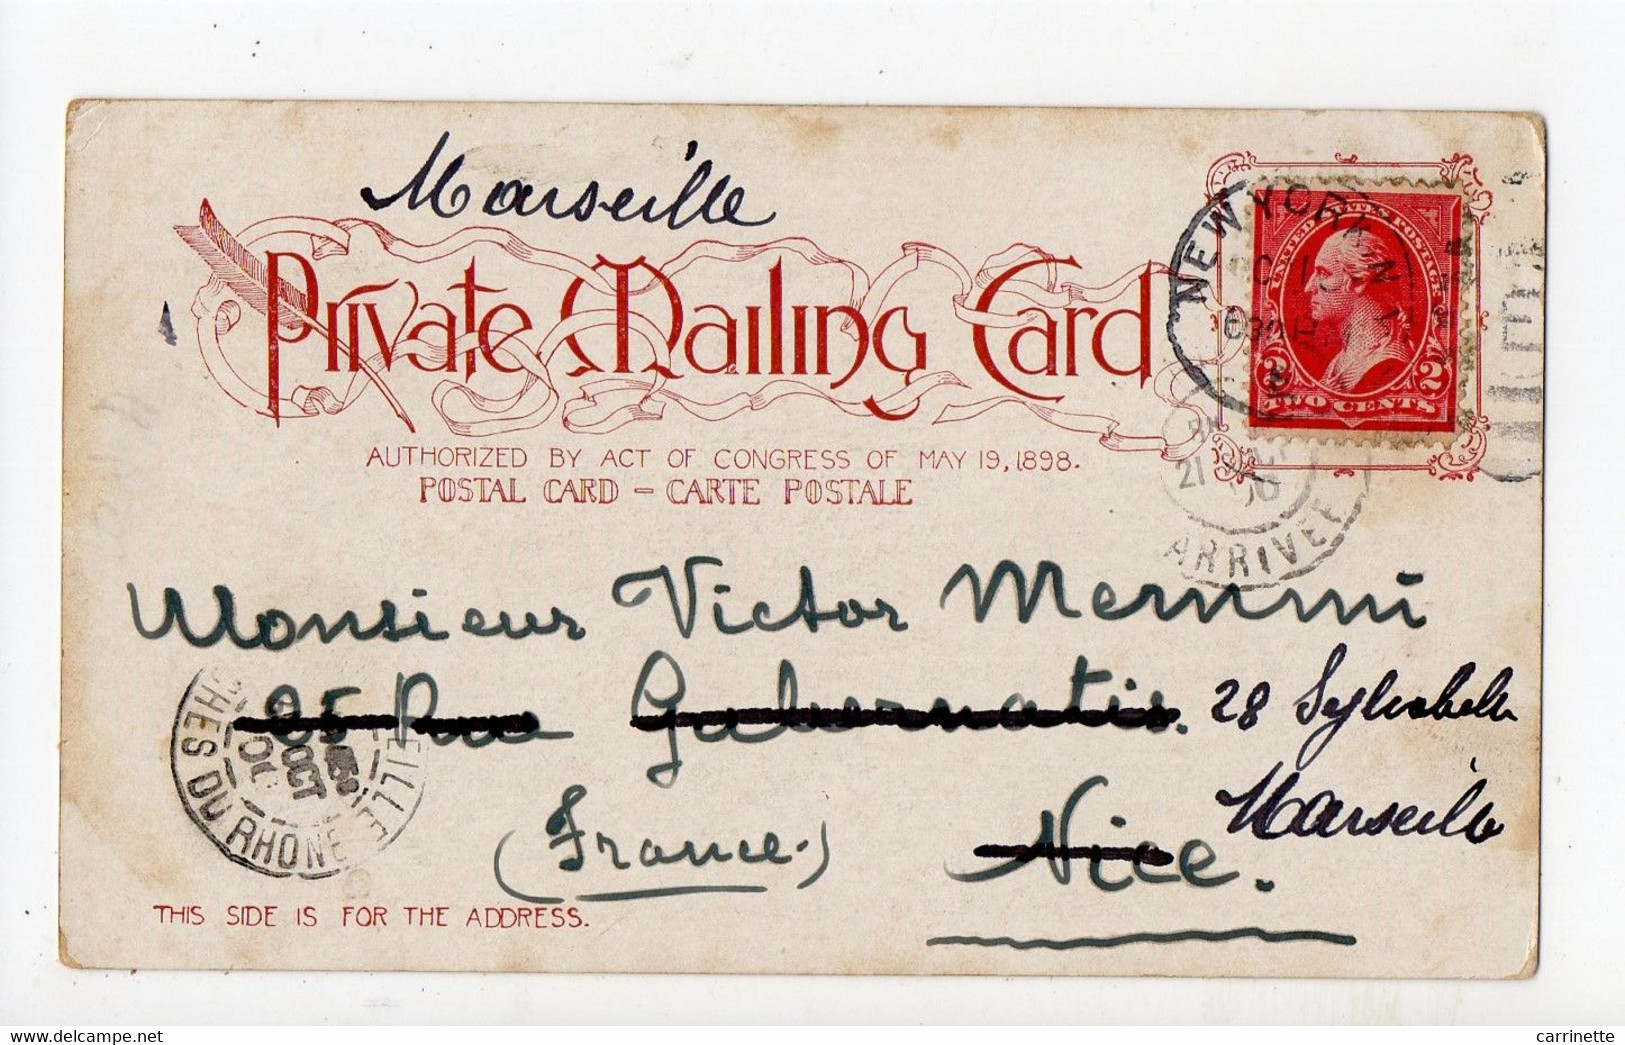 Marseille
Private Mailing Card
AUTHORIZED BY ACT OF CONGRESS OF MAY 19, 1898.
POSTAL CARD – CARTE POSTALE
NEW YORK, N.Y.
630 PM
UNITED STATES POSTAGE
2 2
TWO CENTS
21
ARRIVEE
Monsieur Victor
25 Rue Gubernatis. 28
Marseille
(France.) Nice.
DU RHONE
OCT
THIS SIDE IS FOR THE ADDRESS.
carrinette